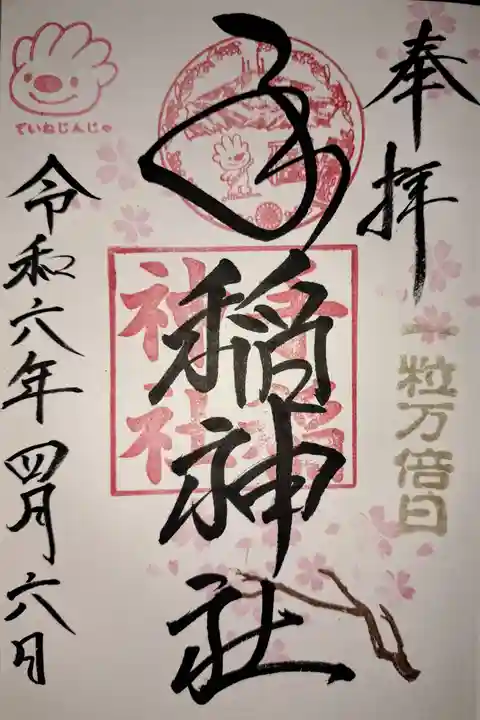 奉拝
一粒万倍日
手稲神社
手稲神社
令和六年四月六日
ていねじんじゃ